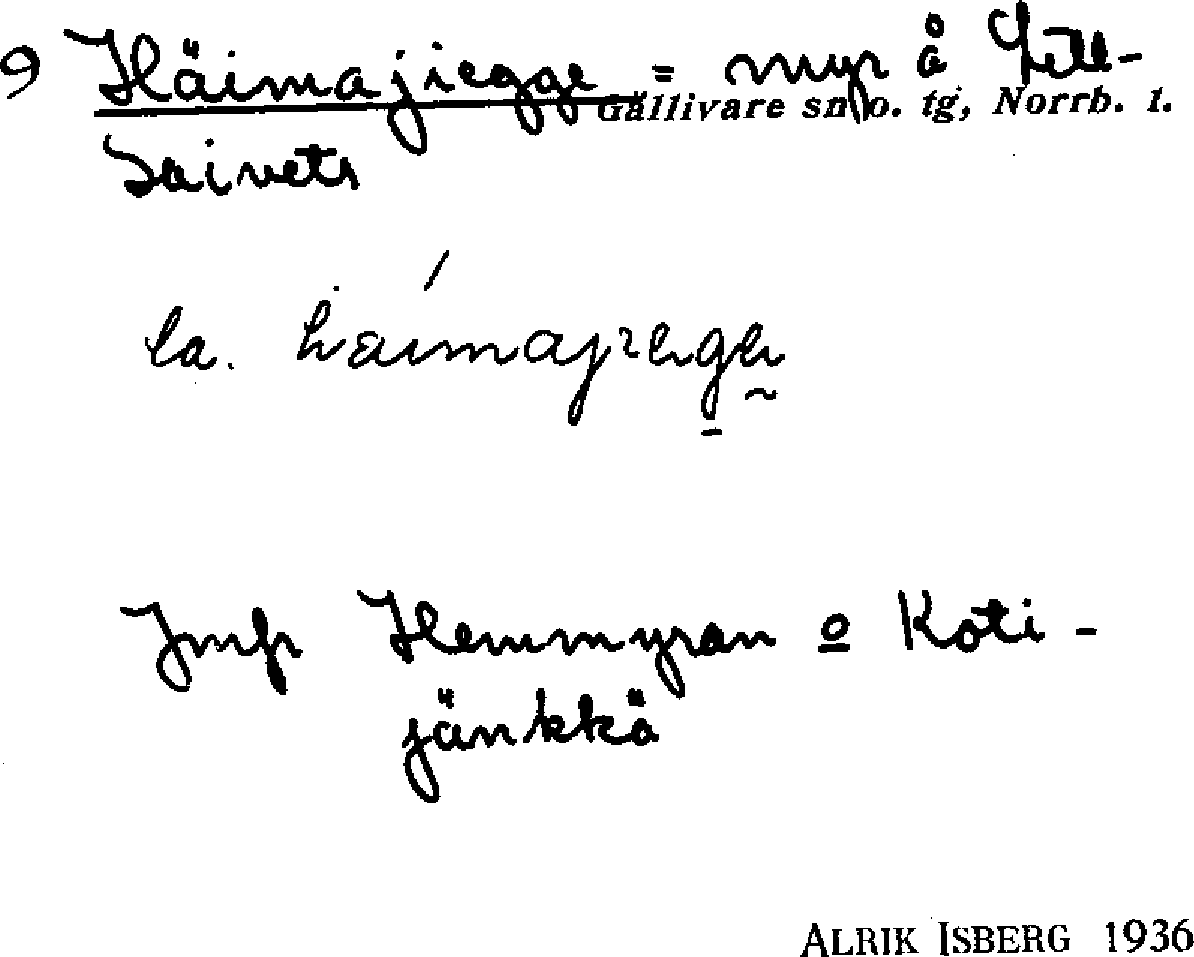 9 Häimajiegge = myr å Lill-
Gällivare sn o. tg, Norrb. l.
Saivets
la. háimajiegge
Jmfr Hemmyran o Koti-
jänkkä
ALRIK ISBERG 1936